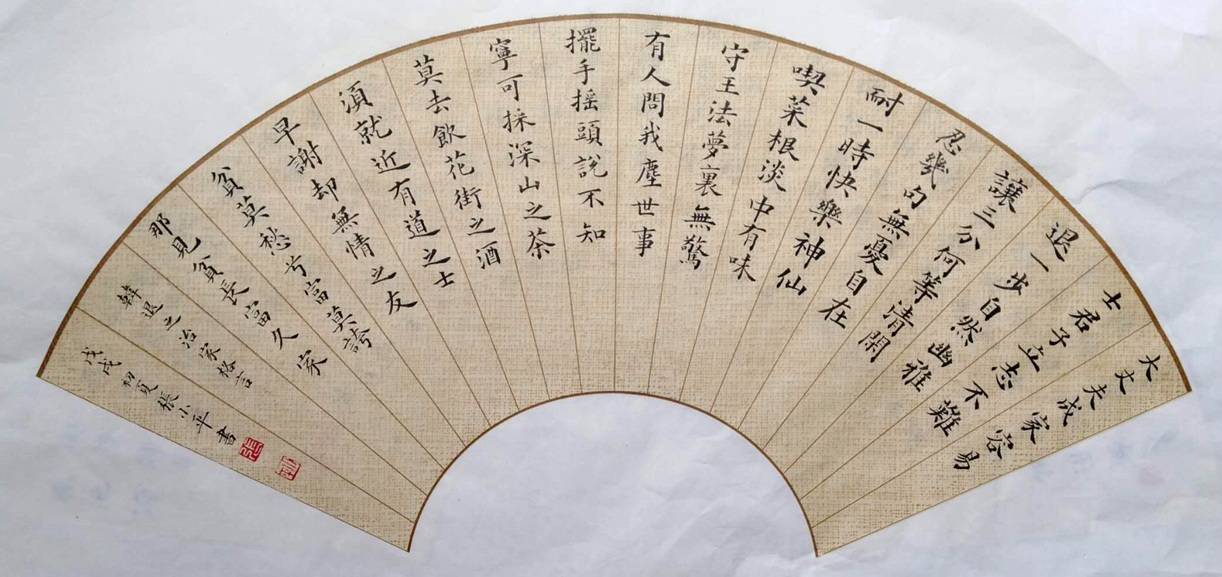 大丈夫成家容易
士君子立志不難
退一步自然幽雅
讓三分何等清閒
忍幾句無憂自在
耐一時快樂神仙
喫菜根淡中有味
守王法夢裏無驚
有人問我塵世事
擺手搖頭說不知
寧可採深山之茶
莫去飲花街之酒
須就近有道之士
早謝却無情之友
貧莫愁兮富莫誇
那見貧長富久家
韓退之治家格言
戊戌初夏張小平書
張